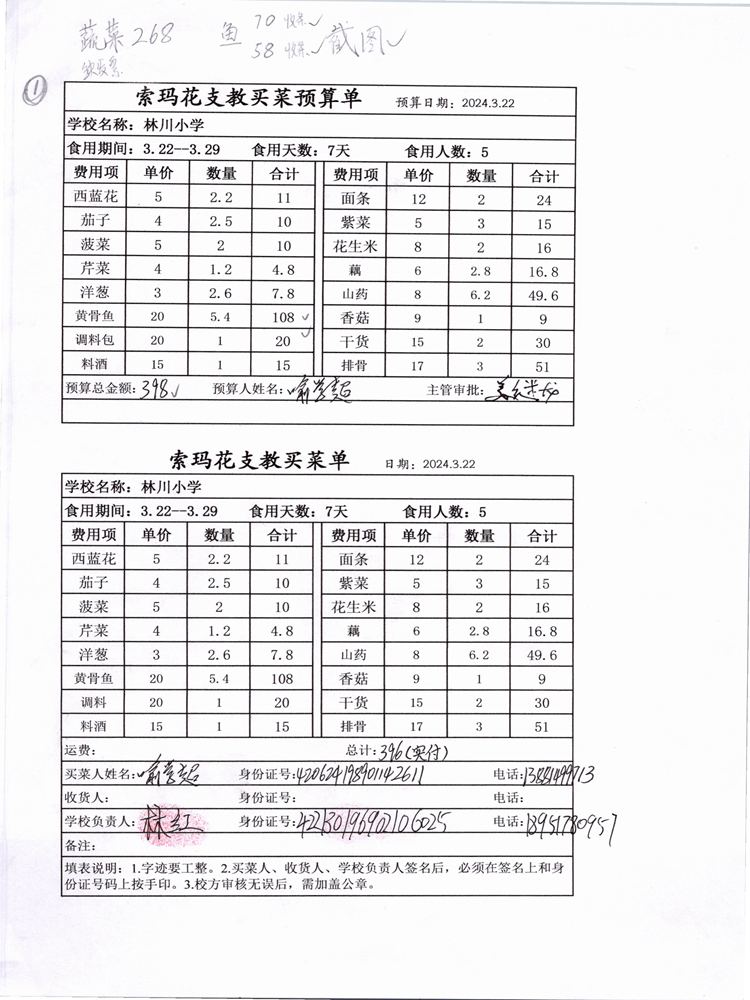 蔬菜268 鱼 70 收条✓ 截图✓
58 收条✓
①
索玛花支教买菜预算单 预算日期：2024.3.22
学校名称：林川小学
食用期间：3.22--3.29 食用天数：7天 食用人数：5
费用项 单价 数量 合计 费用项 单价 数量 合计
西蓝花 5 2.2 11 面条 12 2 24
茄子 4 2.5 10 紫菜 5 3 15
菠菜 5 2 10 花生米 8 2 16
芹菜 4 1.2 4.8 藕 6 2.8 16.8
洋葱 3 2.6 7.8 山药 8 6.2 49.6
黄骨鱼 20 5.4 108 ✓ 香菇 9 1 9
调料包 20 1 20 ✓ 干货 15 2 30
料酒 15 1 15 排骨 17 3 51
预算总金额：398✓ 预算人姓名： 主管审批：
索玛花支教买菜单 日期：2024.3.22
学校名称：林川小学
食用期间：3.22--3.29 食用天数：7天 食用人数：5
费用项 单价 数量 合计 费用项 单价 数量 合计
西蓝花 5 2.2 11 面条 12 2 24
茄子 4 2.5 10 紫菜 5 3 15
菠菜 5 2 10 花生米 8 2 16
芹菜 4 1.2 4.8 藕 6 2.8 16.8
洋葱 3 2.6 7.8 山药 8 6.2 49.6
黄骨鱼 20 5.4 108 香菇 9 1 9
调料 20 1 20 干货 15 2 30
料酒 15 1 15 排骨 17 3 51
运费： 总计：396(实付)
买菜人姓名： 身份证号：420624198901142611 电话：13881499713
收货人： 身份证号： 电话：
学校负责人：林红 身份证号：42230196902106025 电话：18951780957
备注：
填表说明：1.字迹要工整。2.买菜人、收货人、学校负责人签名后，必须在签名上和身
份证号码上按手印。3.校方审核无误后，需加盖公章。